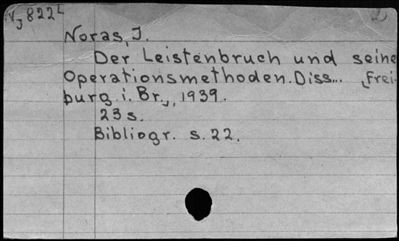 N, 822L
Noras, J.
Der Leistenbruch und seine
Operationsmethoden. Diss... Frei-
burg i. Br., 1939.
23 s.
Bibliogr. s. 22.